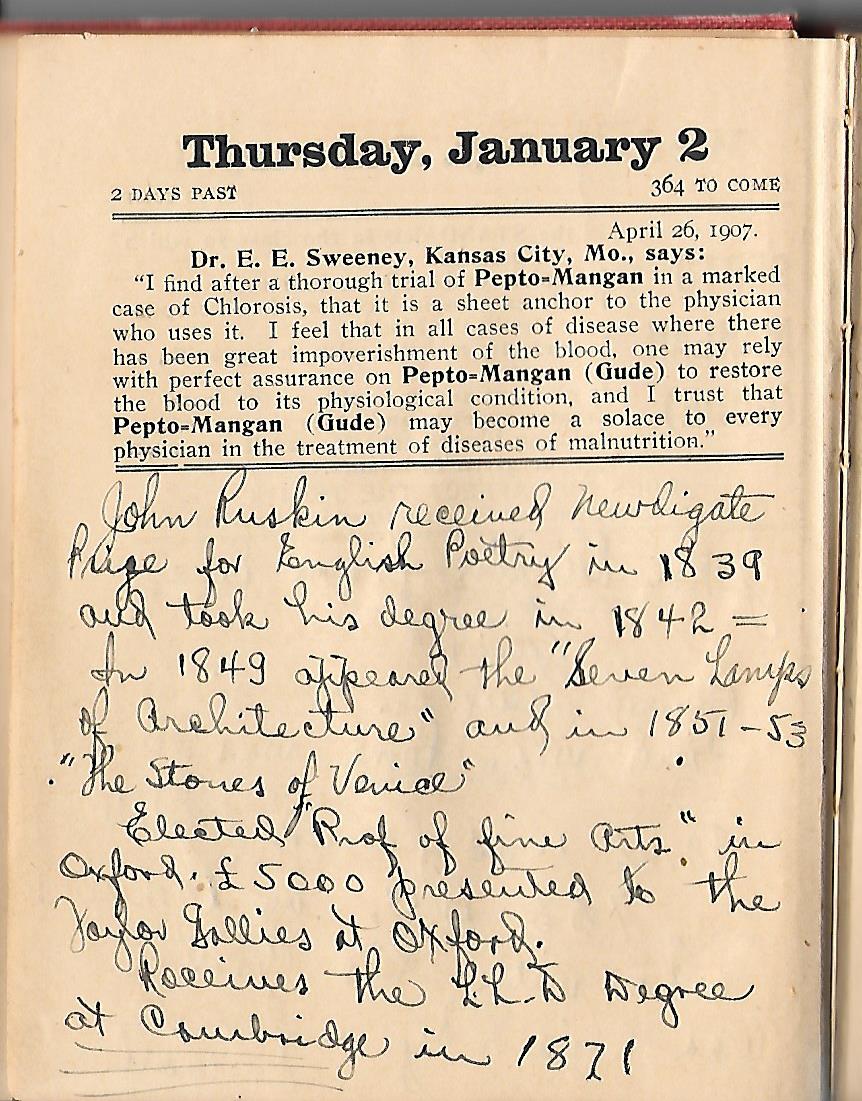 Thursday, January 2
2 DAYS PAST 364 TO COME
April 26, 1907.
Dr. E. E. Sweeney, Kansas City, Mo., says:
"I find after a thorough trial of Pepto=Mangan in a marked
case of Chlorosis, that it is a sheet anchor to the physician
who uses it. I feel that in all cases of disease where there
has been great impoverishment of the blood, one may rely
with perfect assurance on Pepto=Mangan (Gude) to restore
the blood to its physiological condition, and I trust that
Pepto=Mangan (Gude) may become a solace to every
physician in the treatment of diseases of malnutrition."
John Ruskin received Newdigate
Prize for English Poetry in 1839
and took his degree in 1842 =
In 1849 appeared the "Seven Lamps
of Architecture" and in 1851-53
"The Stones of Venice"
Elected "Prof of fine Arts" in
Oxford. £5000 presented to the
Taylor Gallies at Oxford.
Receives the L.L.D Degree
at Cambridge in 1871